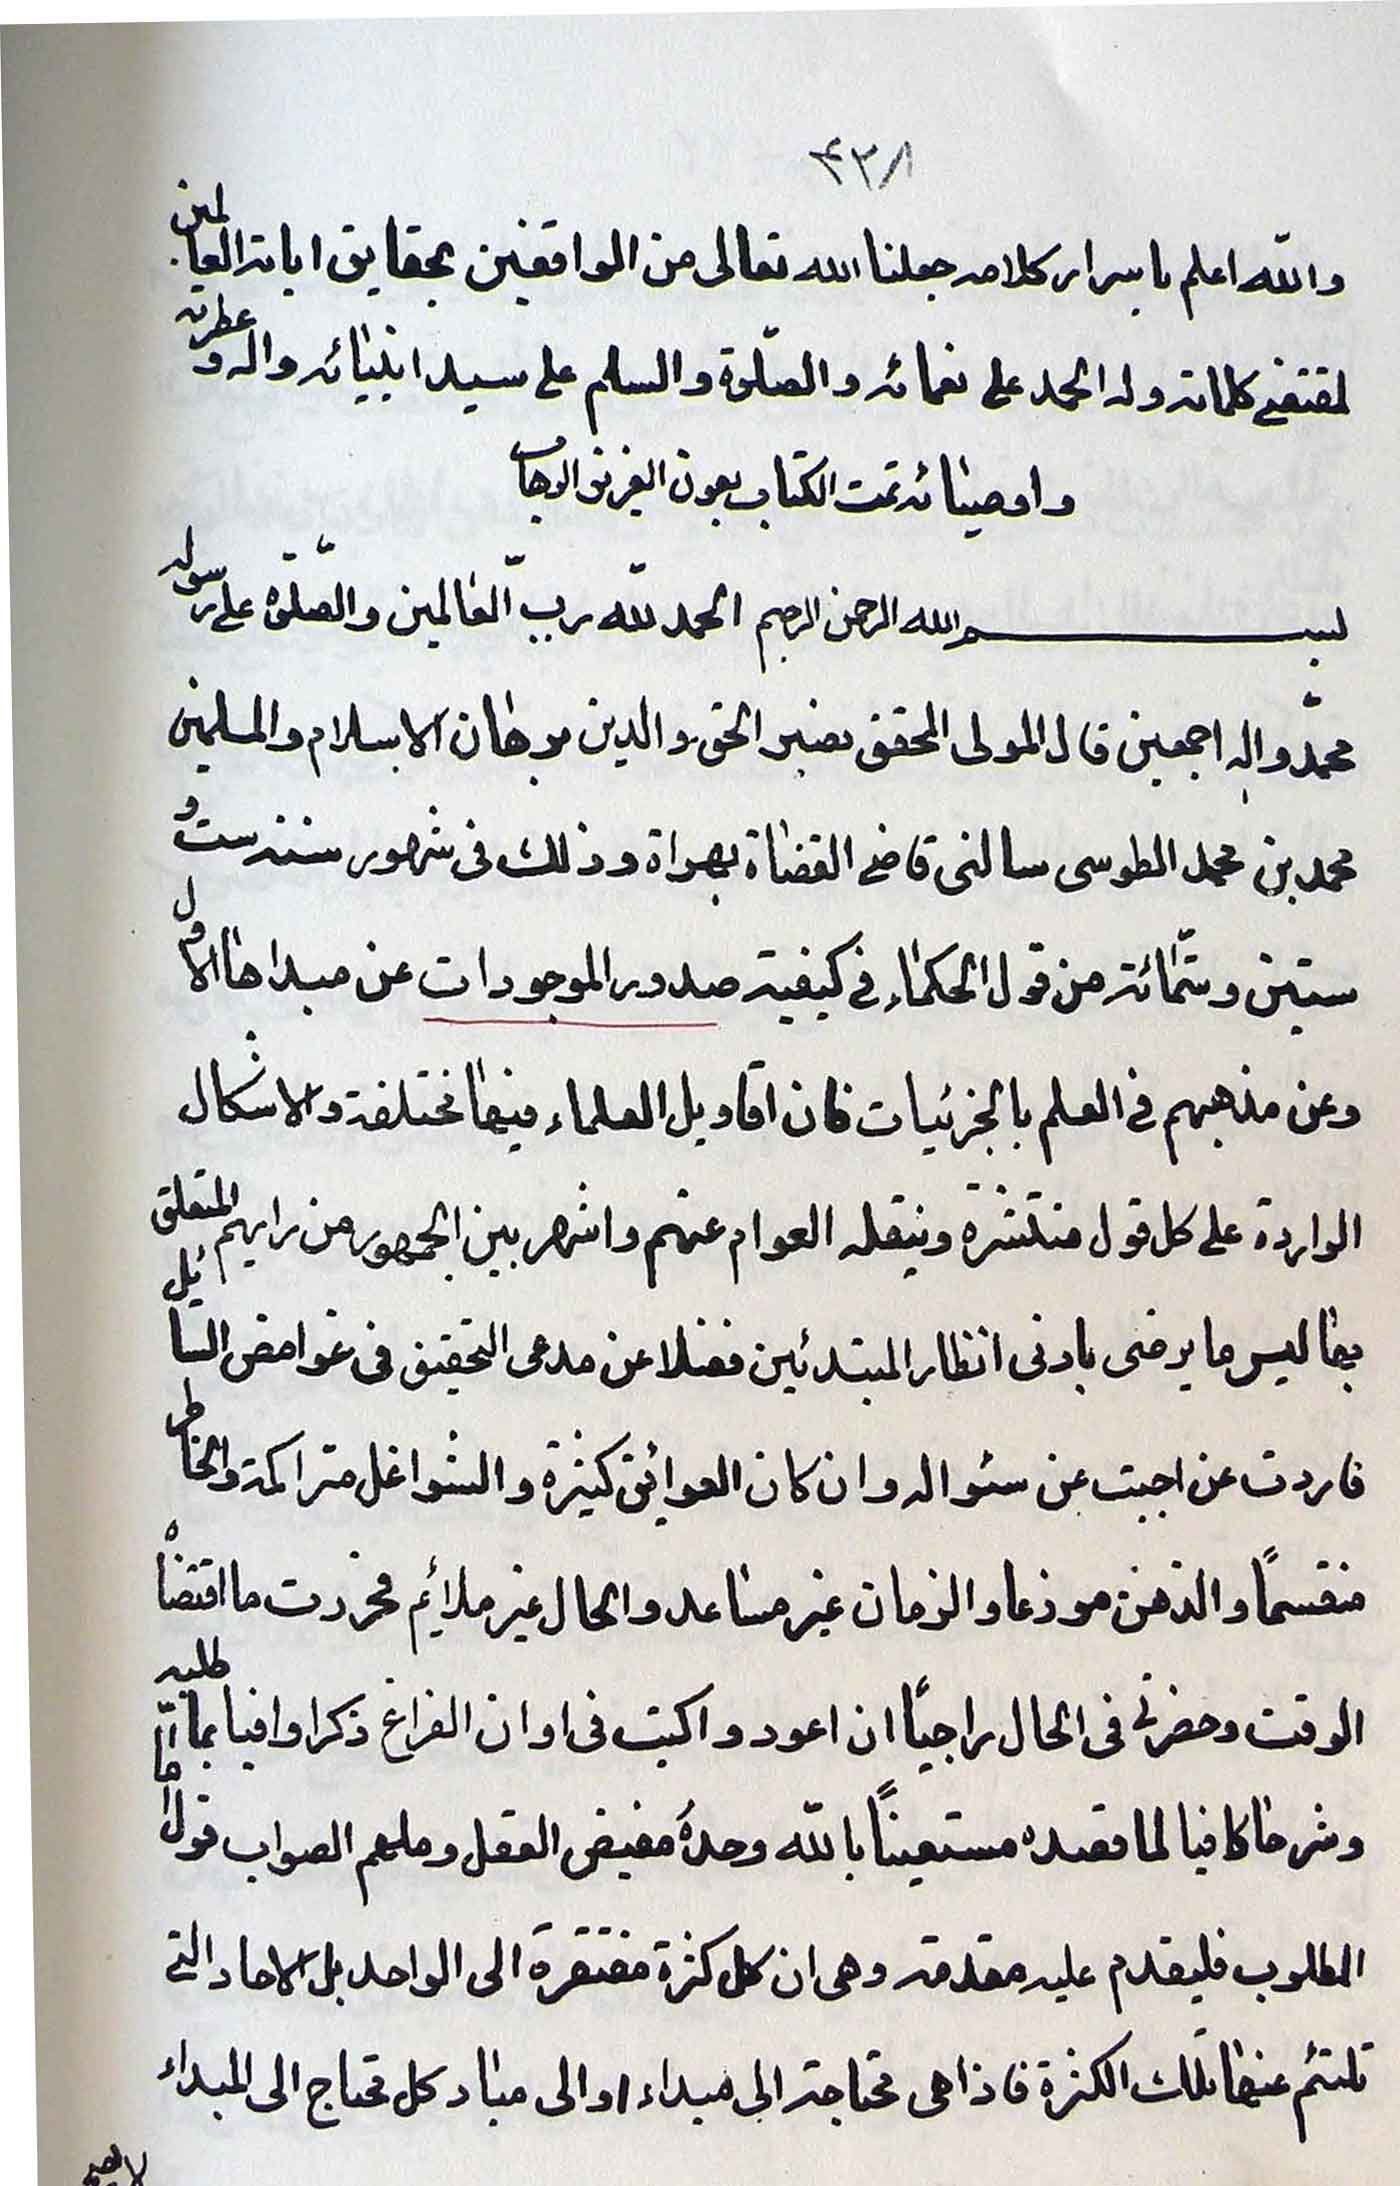 ۴۳۸
والله اعلم باسرار كلامه جعلنا الله تعالى من المواقفين بحقايق اياته العالمين
لمقتضى كلماته وله الحمد على نعمائه والصلوة والسلم على سيد انبيائه واله و عطرته
واوصيائه تمت الكتاب بعون العزيز الوهاب
بسم الله الرحمن الرحيم الحمد لله رب العالمين والصلوة على رسوله
محمد واله اجمعين قال المولى المحقق نصير الحق والدين برهان الاسلام والمسلمين
محمد بن محمد الطوسى سالنى قاضى القضاة بهراة وذلك فى شهور سنه ست و
ستين وستمائة من قول الحكماء فى كيفية صدور الموجودات عن مبداها الاول
وعن مذهبهم فى العلم بالجزئيات فان اقاويل العلماء فيها مختلفة والاشكال
الواردة على كل قول منتشرة وينقله العوام عنهم واشهر بين الجمهور من رايهم المتعلق
بها ليس ما يرضى بادنى انظار المبتدئين فضلا عن مدعى التحقيق فى غوامض المسائل
فاردت عن اجبت عن سئواله وان كان العوائق كثيرة والشواغل متراكمة والخاطر
منقسمًا والذهن موذعا والزمان غير مساعد والحال غير ملائم فحررت ما اقتضاه
الوقت وحضرنى فى الحال راجيًا ان اعود واكتب فى اوان الفراغ ذكرا وافيا بما طلبه
وشرحا كافيا لما قصده مستعينًا بالله وحده مفيض العقل وملهم الصواب فول اما
المطلوب فليقدم عليه مقدمه وهى ان كل كثرة مفتقرة الى الواحد بل الاحاد التى
تلتئم عنها تلك الكثرة فاذا هى محتاجة الى مبداء او الى مباد كل محتاج الى المبداء